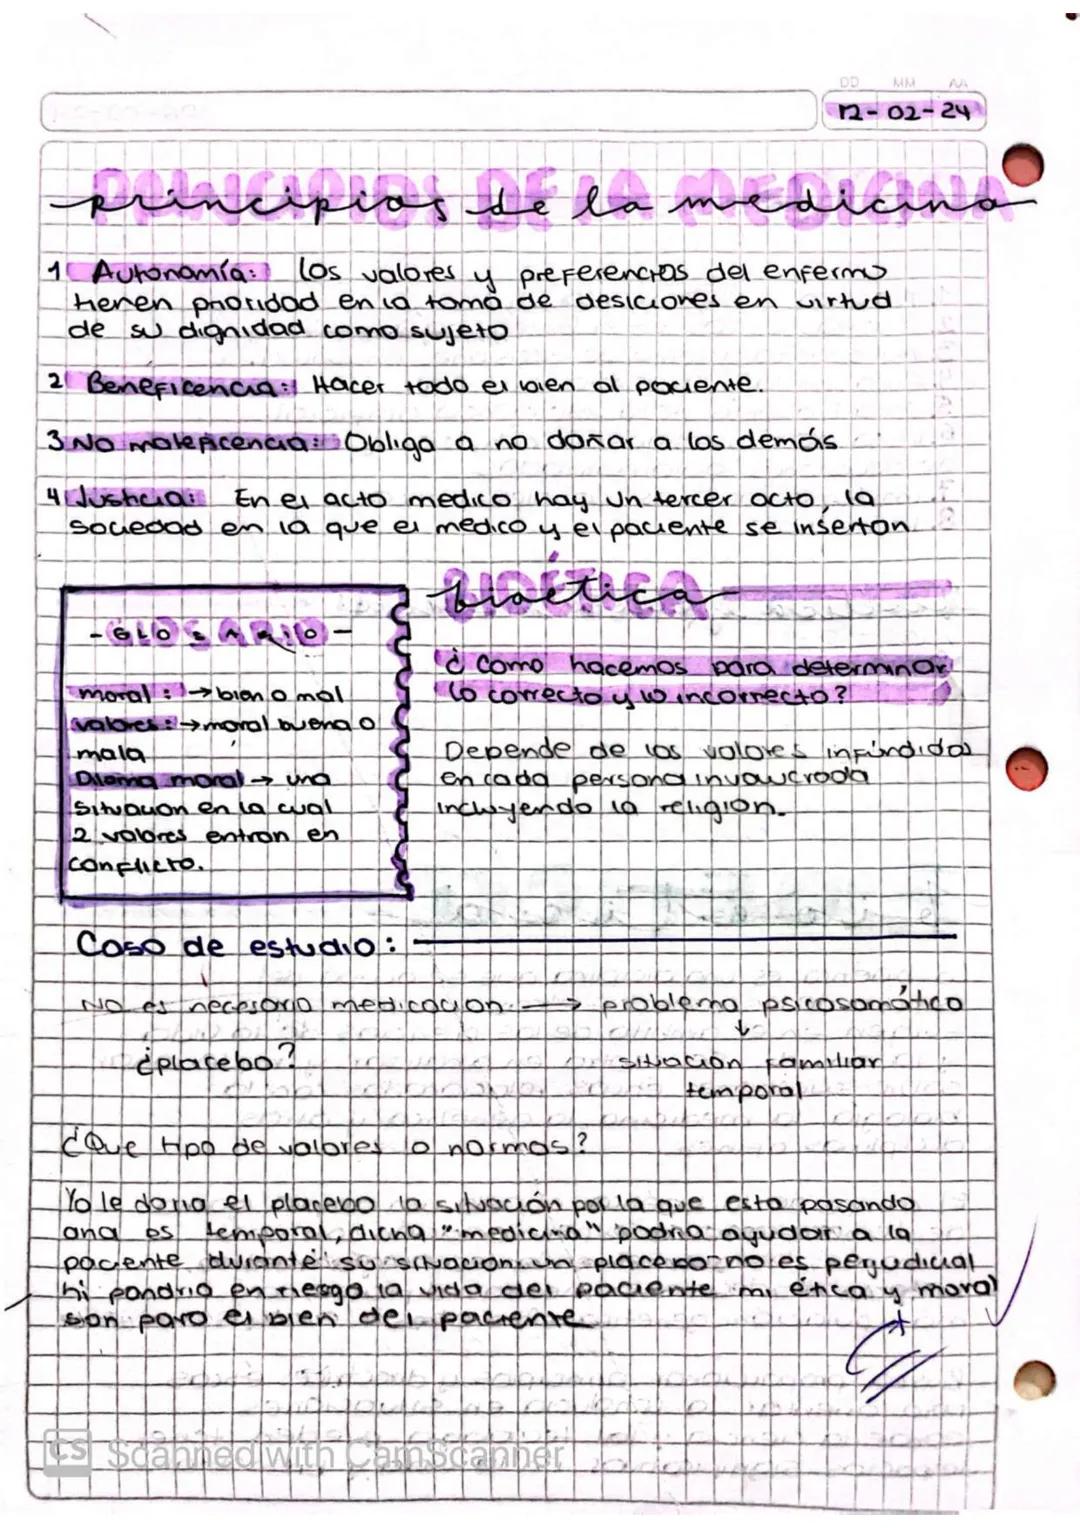 DD MM AA
12-02-24
PRINCIPIOS DE LA MEDICINA
principios de la medicina
1 Autonomía: los valores y preferencias del enfermo
tienen prioridad en la toma de desiciones en virtud
de su dignidad como sujeto
2 Beneficencia: Hacer todo el bien al paciente.
3 No maleficencia: Obliga a no dañar a los demás
4 Justicia: En el acto medico hay un tercer acto, la
sociedad en la que el medico y el paciente se insertan.
BIOÉTICA
bioética
- GLOSARIO -
moral: → bien o mal
valores: → moral buena o
mala
Dilema moral → una
situacion en la cual
2 valores entran en
conflicto.
¿Como hacemos para determinar
lo correcto y lo incorrecto?
Depende de los valores infundidos
en cada persona involucrada
incluyendo la religion.
Caso de estudio:
No es necesario medicacion. → problema psicosomático
↓
¿placebo? situacion familiar
temporal
¿Que tipo de valores o normas?
Yo le daria el placebo la situación por la que esta pasando
ana es temporal, dicha "medicina" podria ayudar a la
paciente durante su situacion, un placebo no es perjudicial
ni pondria en riesgo la vida del paciente mi ética y moral
son para el bien del paciente
CS Scanned with CamScanner